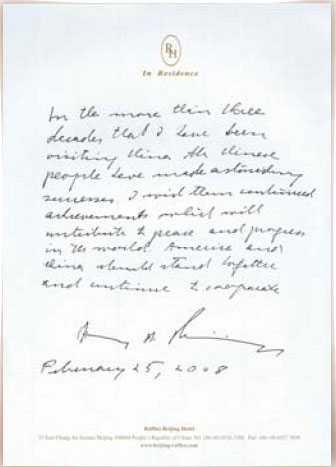 RH
In Residence
In the more than three
decades that I have been
visiting China the Chinese
people have made astonishing
successes. I wish them continued
achievements which will
contribute to peace and progress
in the world. America and
China should stand together
and continue to cooperate
February 25, 2008
Raffles Beijing Hotel
www.beijing.raffles.com